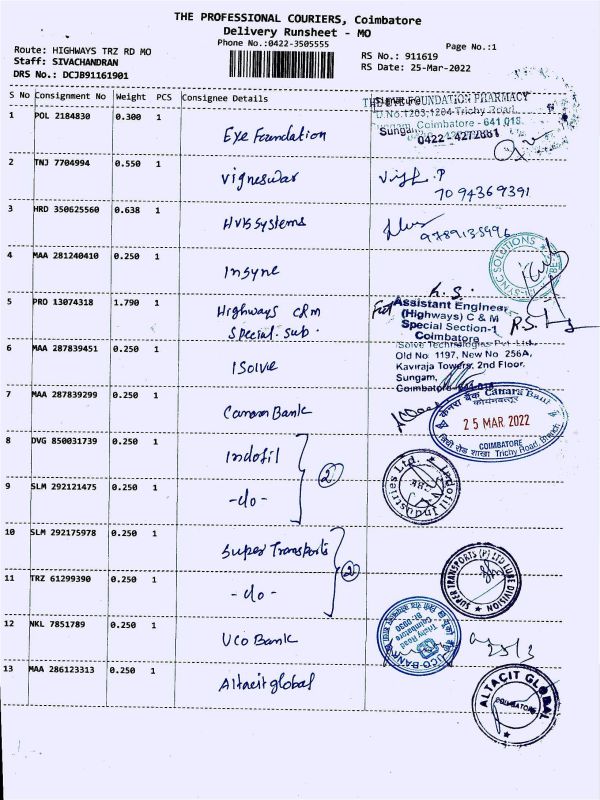 THE PROFESSIONAL COURIERS, Coimbatore
Delivery Runsheet - MO
Phone No.:0422-3505555
Page No.:1
Route: HIGHWAYS TRZ RD MO
Staff: SIVACHANDRAN
DRS No.: DCJB91161901
RS No.: 911619
RS Date: 25-Mar-2022
S No Consignment No Weight PCS Consignee Details
1 POL 2184830 0.300 1 Eye Foundation
THE EYE FOUNDATION PHARMACY
D.No.1203,1204-Trichy Road,
Sungam, Coimbatore - 641 018.
0422 - 4272661
2 TNJ 7704994 0.550 1 Vigneswar
P
7094369391
3 HRD 350625560 0.638 1 HVK Systems
4 MAA 281240410 0.250 1 Insync
SYNC SOLUTIONS
5 PRO 13074318 1.790 1 Highways C&M
Special. Sub.
Assistant Engineer
(Highways) C & M
Special Section-1
Coimbatore
6 MAA 287839451 0.250 1 ISolve
Solve Technologies Pvt. Ltd.,
Old No 1197, New No 256A,
Kaviraja Towers, 2nd Floor,
Sungam,
Coimbatore
7 MAA 287839299 0.250 1 Canara Bank
केनरा बैंक Canara Bank
कोयम्बत्तूर
25 MAR 2022
COIMBATORE
Trichy Road Branch
8 DVG 850031739 0.250 1 Indofil
2
Indofil Industries Ltd.
9 SLM 292121475 0.250 1 -do-
10 SLM 292175978 0.250 1 Super Transports
2
SUPER TRANSPORTS (P) LTD LUBE DIVISION
11 TRZ 61299390 0.250 1 -do-
12 NKL 7851789 0.250 1 UCO Bank
UCO BANK
Trichy Road
Coimbatore
13 MAA 286123313 0.250 1 Altacit global
ALTACIT GLOBAL
COIMBATORE